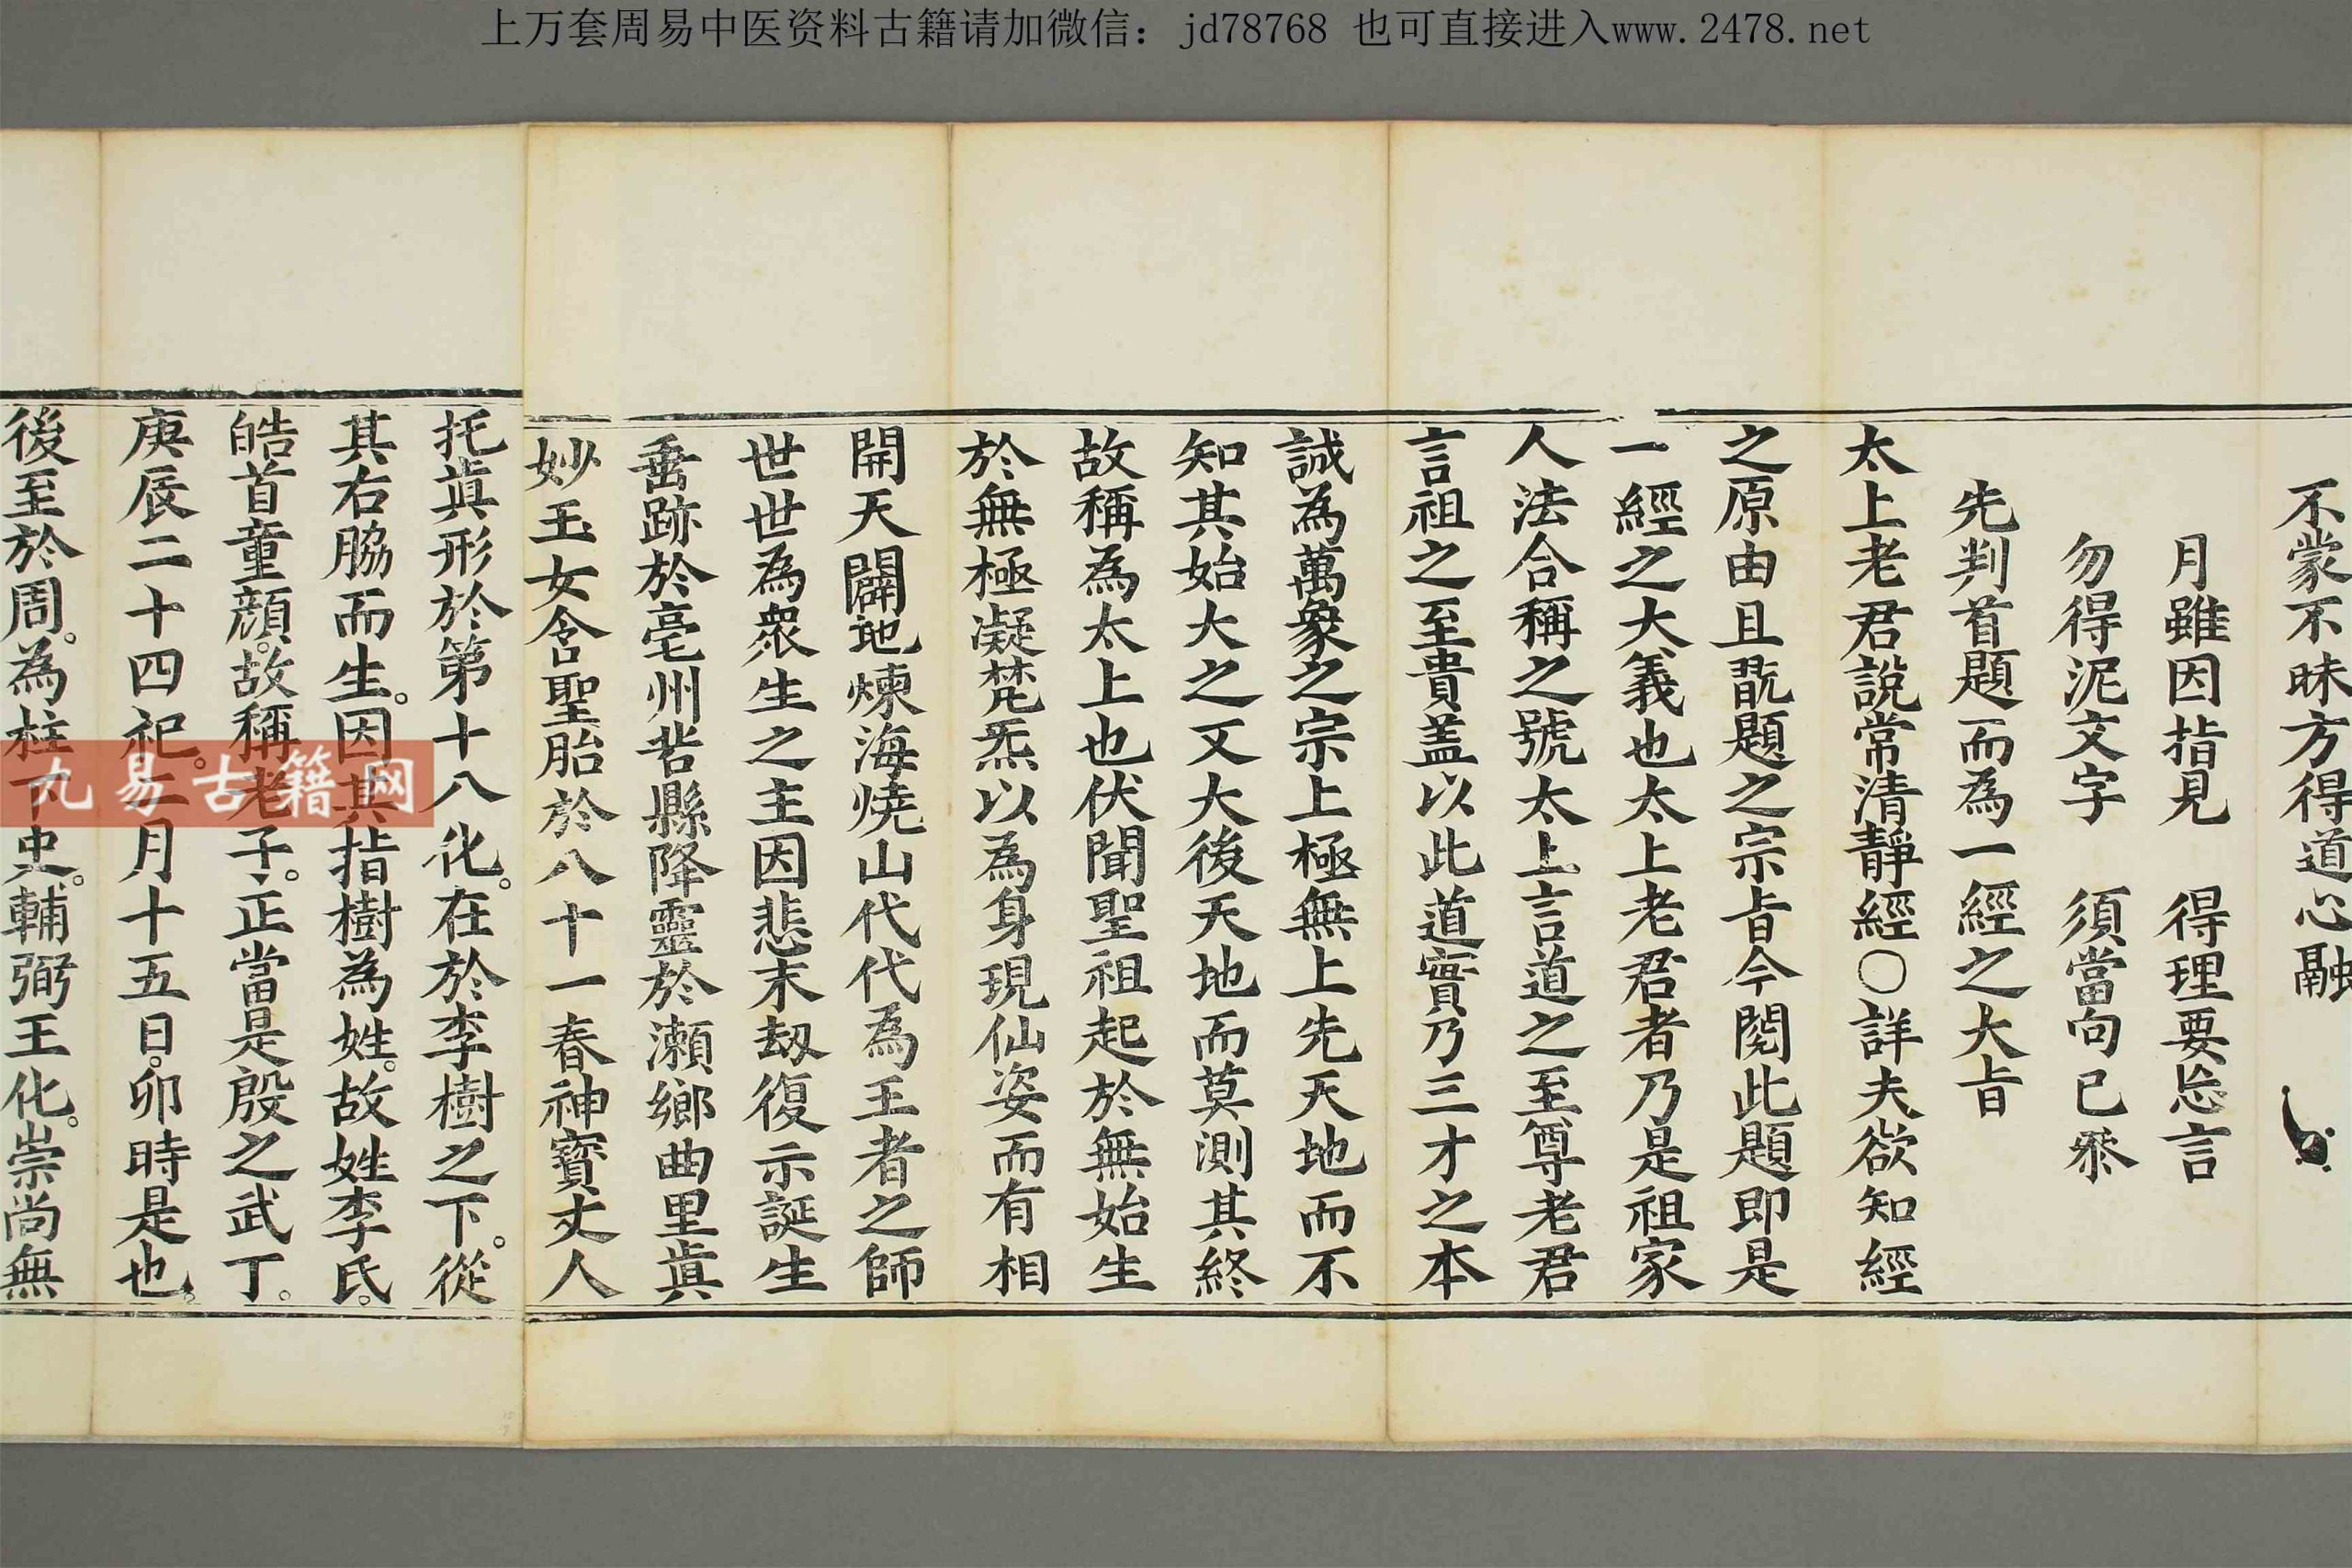 上万套周易中医资料古籍请加微信：jd78768 也可直接进入www.2478.net
不蒙不昧方得道心融
月雖因指見　得理要忘言
勿得泥文字　須當向己叅
先判首題而為一經之大旨
太上老君說常清靜經○詳夫欲知經
之原由且翫題之宗旨今閱此題即是
一經之大義也太上老君者乃是祖家
人法合稱之號太上言道之至尊老君
言祖之至貴盖以此道實乃三才之本
誠為萬象之宗上極無上先天地而不
知其始大之又大後天地而莫測其終
故稱為太上也伏聞聖祖起於無始生
於無極凝梵炁以為身現仙姿而有相
開天闢地煉海燒山代代為王者之師
世世為衆生之主因悲末刼復示誕生
垂跡於亳州苦縣降靈於瀬鄉曲里真
妙玉女含聖胎於八十一春神寶丈人
托真形於第十八化。在於李樹之下。從
其右脇而生。因其指樹為姓。故姓李氏。
皓首童顏。故稱老子。正當是殷之武丁。
庚辰二十四祀。二月十五日。卯時是也。
後至於周。為柱下史。輔弼王化。崇尚無
九易古籍网